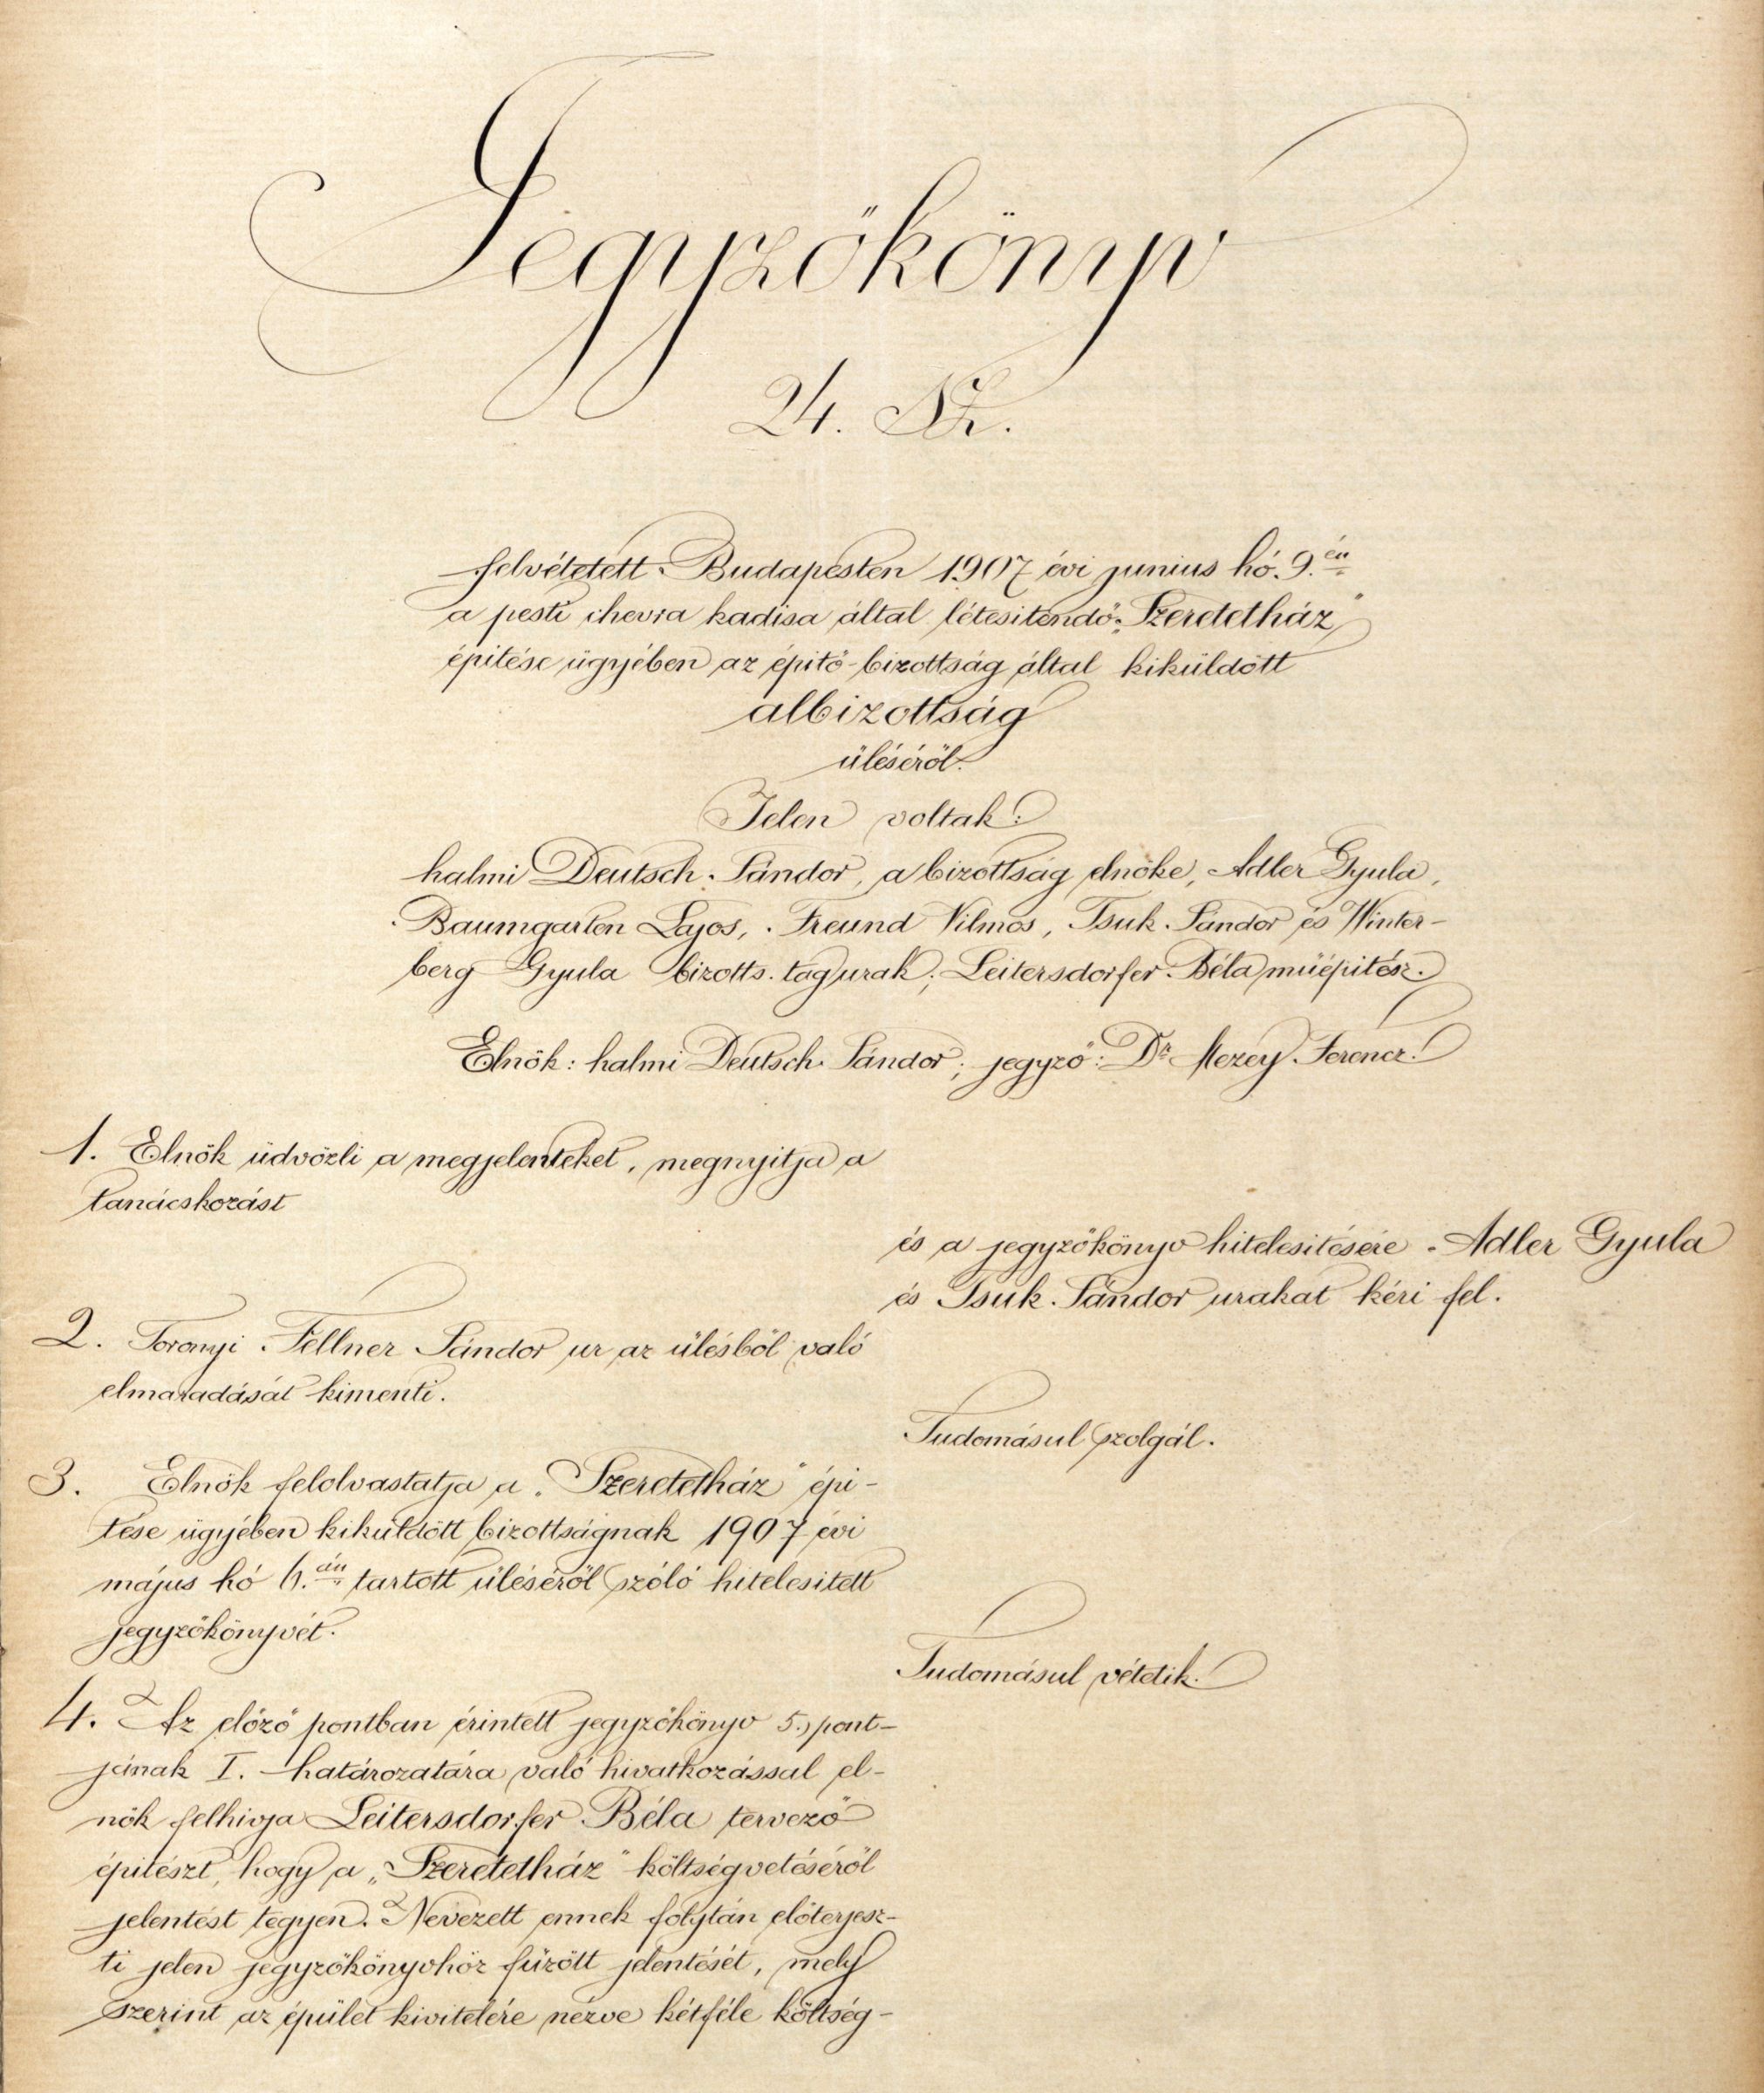 Jegyzőkönyv
24. Sz.
felvétetett Budapesten 1907 évi junius hó 9.én
a pesti chevra kadisa által létesitendő „Szeretetház"
épitése ügyében az épitő-bizottság által kiküldött
albizottság
üléséről.
Jelen voltak:
halmi Deutsch Sándor, a bizottság elnöke, Adler Gyula,
Baumgarten Lajos, Freund Vilmos, Tsuk Sándor és Winter-
berg Gyula bizotts. tag urak; Leitersdorfer Béla műépitész.
Elnök: halmi Deutsch Sándor; jegyző: Dr Mezey Ferencz.
1. Elnök üdvözli a megjelenteket, megnyitja a
tanácskozást
és a jegyzőkönyv hitelesitésére Adler Gyula
és Tsuk Sándor urakat kéri fel.
2. Toronyi Fellner Sándor ur az ülésből való
elmaradását kimenti.
Tudomásul szolgál.
3. Elnök felolvastatja a „Szeretetház" épi-
tése ügyében kiküldött bizottságnak 1907 évi
május hó 6.án tartott üléséről szóló hitelesitett
jegyzőkönyvét.
Tudomásul vétetik.
4. Az előző pontban érintett jegyzőkönyv 5.) pont-
jának I. határozatára való hivatkozással el-
nök felhivja Leitersdorfer Béla tervező
épitészt, hogy a „Szeretetház" költségvetéséről
jelentést tegyen. Nevezett ennek folytán előterjesz-
ti jelen jegyzőkönyvhöz fűzött jelentését, mely
szerint az épület kivitelére nézve kétféle költség-